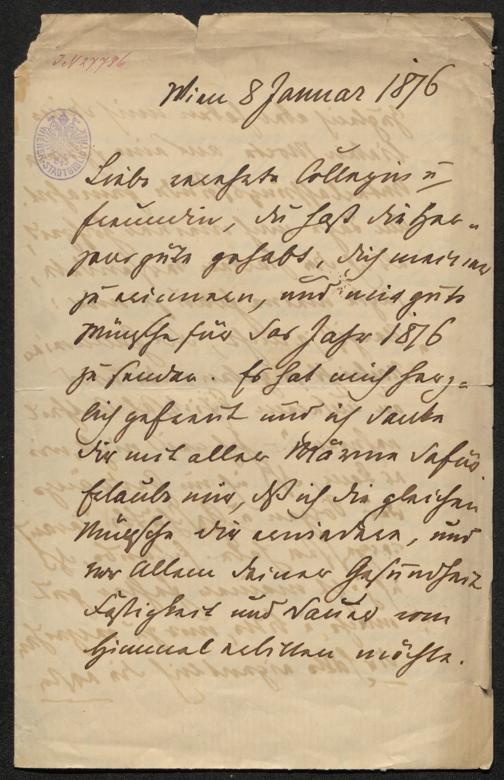 J.N. 27796
Wien 8 Januar 1876
WIENER STADTBIBLIOTHEK
Liebe verehrte Collegin u
Freundin, du hast die Her-
zensgüte gehabt, dich meiner
zu erinnern, und mir gute
Wünsche für das Jahr 1876
zu senden. Es hat mich herz-
lich gefreut und ich danke
dir mit aller Wärme dafür.
Erlaube mir, daß ich die gleichen
Wünsche dir erwiedere, und
vor Allem deiner Gesundheit
Festigkeit und Dauer vom
Himmel erbitten möchte.